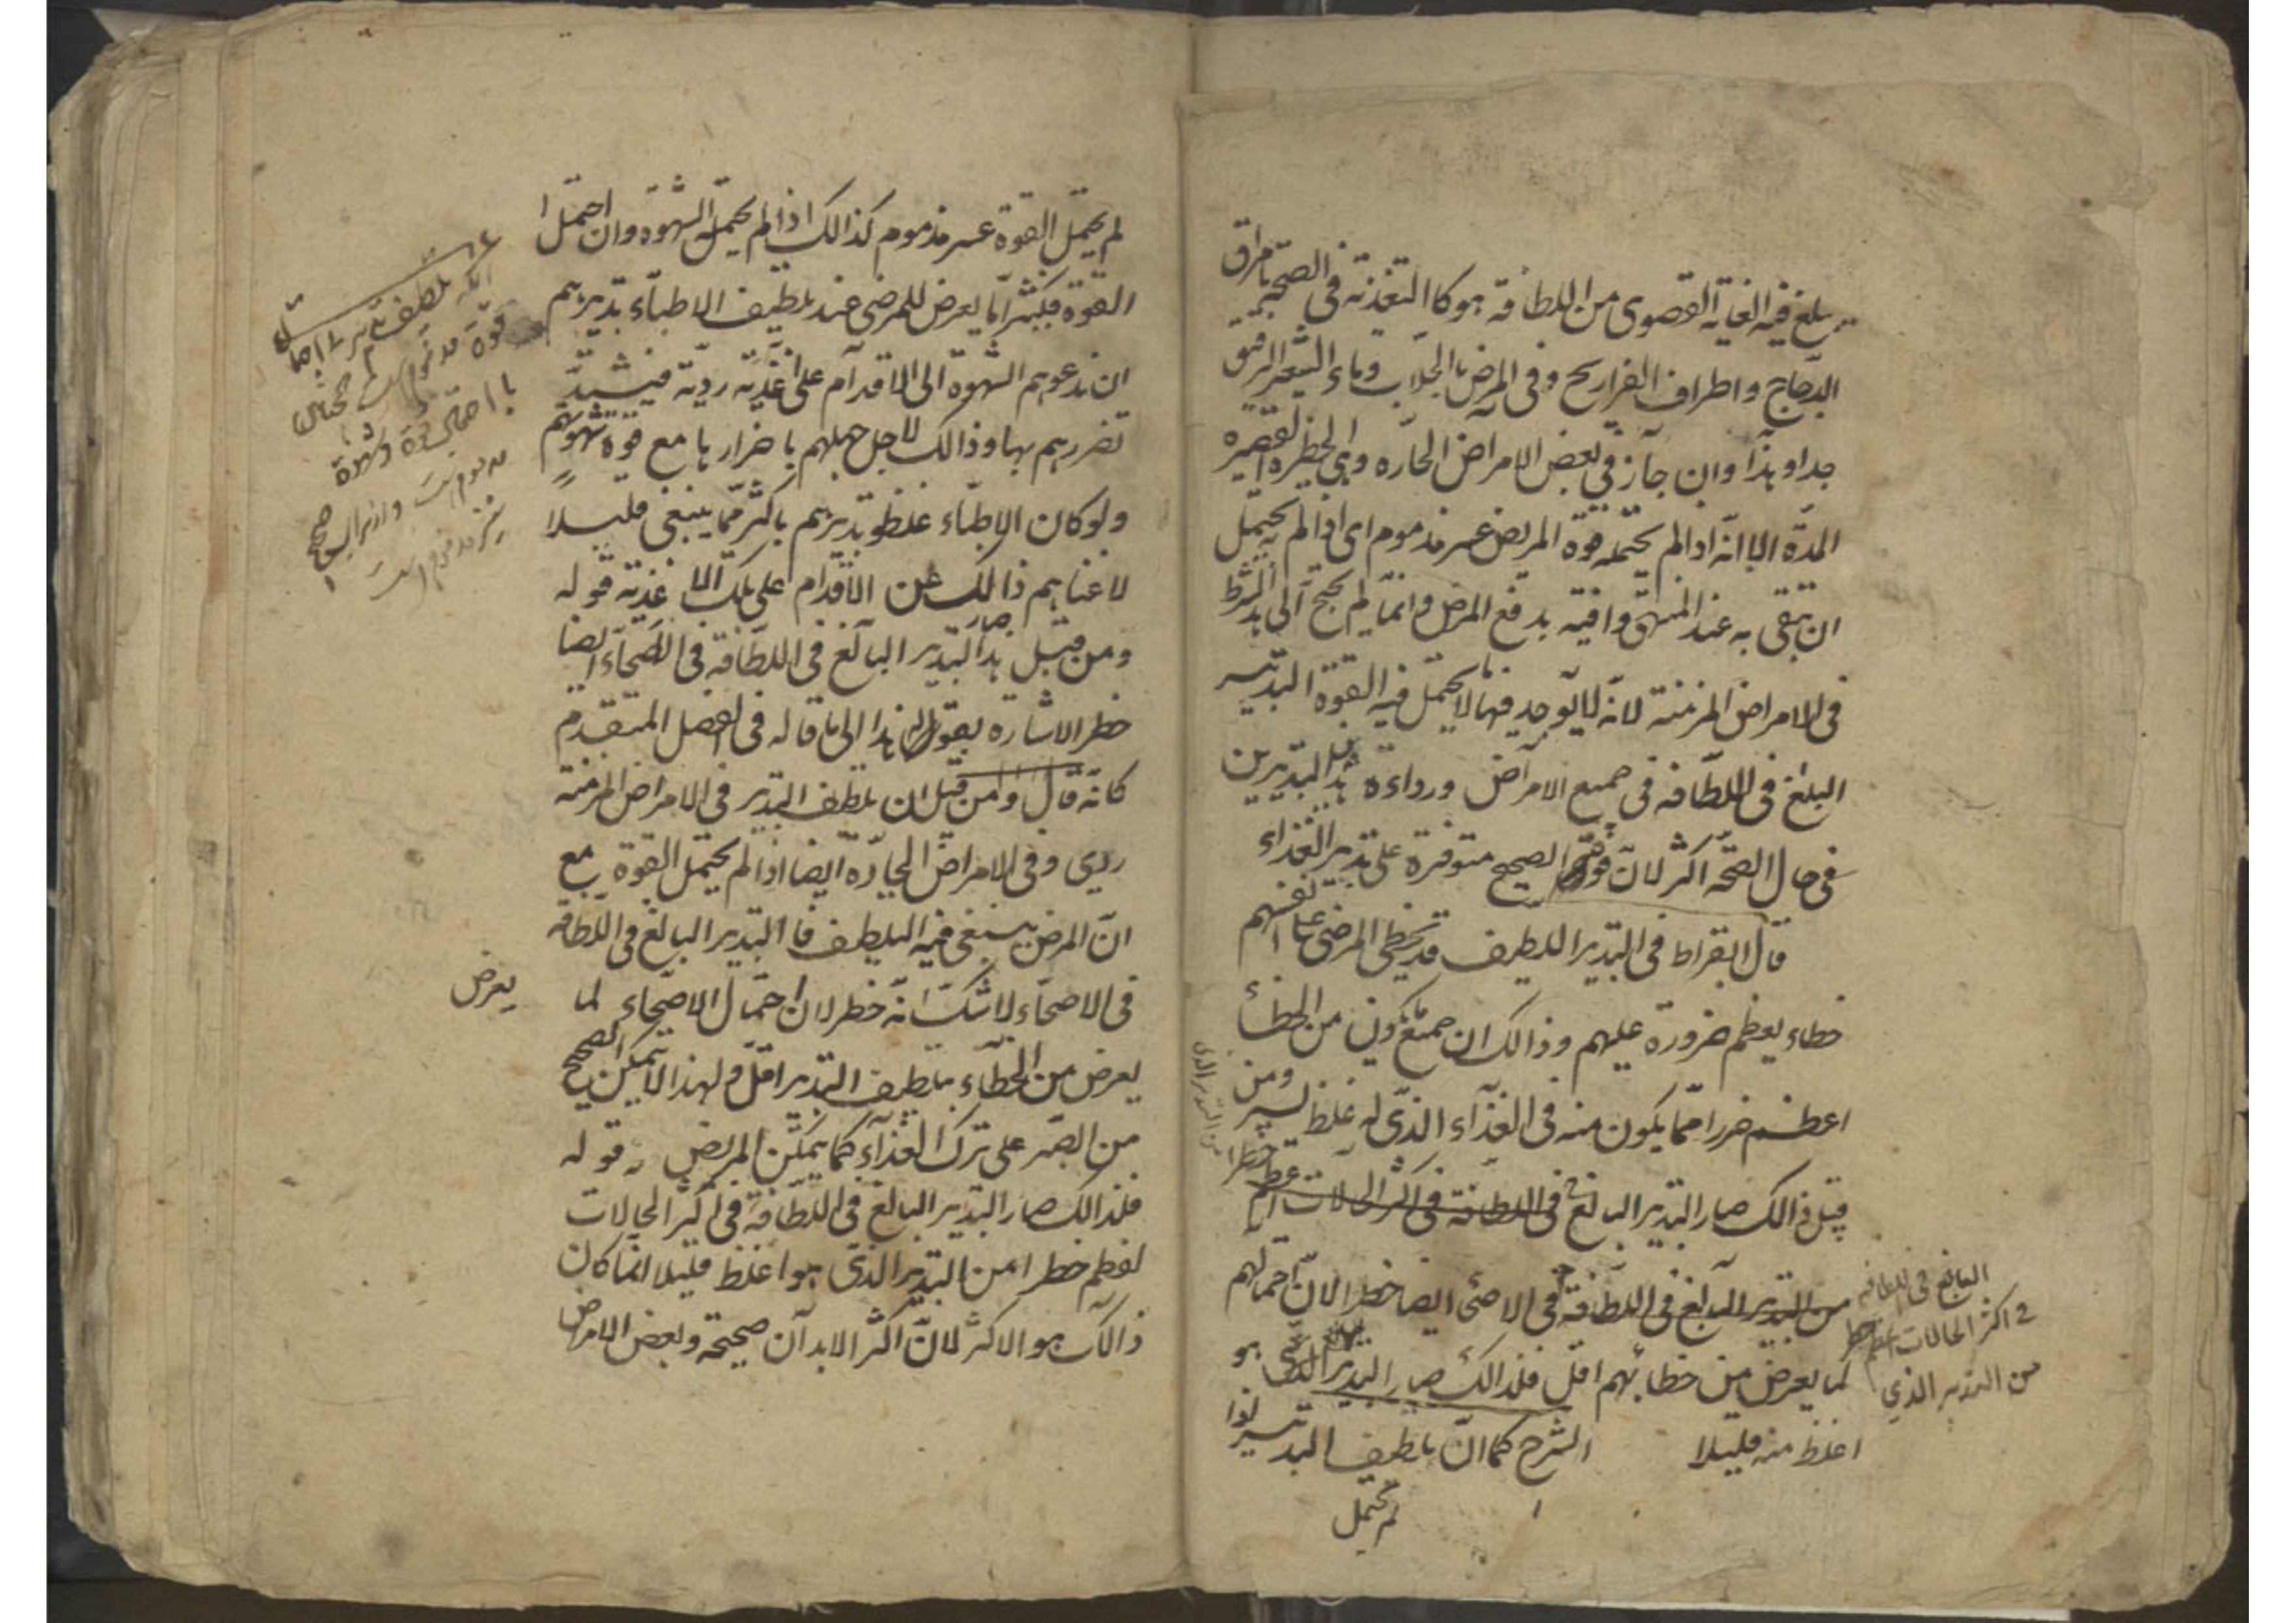 يبلغ فيه الغاية القصوى من اللطافة هو كالتغذية فى الصحة بامراق
الدجاج واطراف الفراريج وفى المرض بالجلاب وماء الشعير الرقيق
جدا وهذا وان جاز فى بعض الامراض الحاره وهى الخطره القصيره
المدّة الا انّه اذا لم يحتمله قوة المريض عسر مذموم اى اذا لم يحتمل
ان تبقى به عند المنتهى وافية بدفع المرض وانما لم يحتج الى هذا الشرط
فى الامراض المزمنة لانه لا يوجد فيها ما لا يحتمل فيه القوة التدبير
البلغ فى اللطافه فى جميع الامراض ورداءة هذا التدبيرين
فى حال الصحّة اكثر لانّ قوة الصحيح متوفرة على تدبير الغذاء
قال البقراط فى التدبير اللطيف قد يخطى المرضى على انفسهم
خطاء يعظم ضرورة عليهم وذالك ان جميع ما يكون من الخطأ
اعظم ضررا ممّا يكون منه فى الغذآء الذى له غلظ يسير ومن
قبل ذالك صار التدبير البالغ فى اللطافة فى اكثر الحالات اعظم خطرا
من التدبير البالغ فى اللطافة فى الاصحى ايضا خطر الانّ احتمالهم
لما يعرض من خطائهم اقل فلذالك صار التدبير الذى هو
اغلظ منه قليلا الشرح كما انّ تلطيف التدبير اذا
لم تحتمل
البالغ فى اللطافه
فى اكثر الحالات اعظم خطر
من التدبير الذى
من التدبير الذى
لم يحتمل القوة عسر مذموم كذالك اذا لم يحتمل الشهوة وان احتمل ا
القوة فكثيرا ما يعرض للمرضى عند تلطيف الاطباء تدبيرهم
ان تدعوهم الشهوة الى الاقدام على اغذية ردية فيشتدّ
تضررهم بها وذالك لاجل جهلهم باضرارها مع قوة شهوتهم
ولو كان الاطبّاء غلظو تدبيرهم باكثر ممّا ينبغى قليلاً
لاغناهم ذالك عن الاقدام على تلك الاغذية قوله
ومن قبل هذا صار التدبير البالغ فى اللطافة فى الاصحاء ايضا
خطر الاشارة بقوله هذا الى ما قاله فى الفصل المتقدم
كانه قال ومن قبل ان تلطف التدبير فى الامراض المزمنة
ردى وفى الامراض الحادّه ايضا اذا لم يحتمل القوة مع
انّ المرض ينبغى فيه التلطيف فا التدبير البالغ فى اللطافة
فى الاصحاء لا شك انّه خطر لان احتمال الاصحاء لما
يعرض
يعرض من الخطاء بتلطيف التدبير اقل ولهذا لا يتمكن الصحيح
من الصبر على ترك الغذآء كما يتمكّن المريض قوله
فلذالك صار التدبير البالغ فى اللطافة فى اكثر الحالات
اعظم خطرا من التدبير الذى هو اغلظ قليلا انما كان
ذالك هو الاكثر لانّ اكثر الابدان صحيحة وبعض الامراض